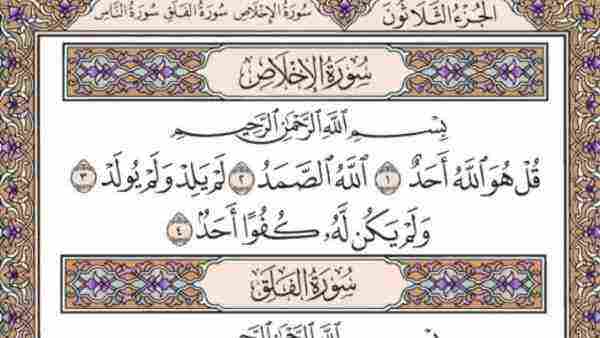 الجزء الثلاثون سورة الإخلاص سورة الفلق سورة الناس
سُورَةُ الإِخْلَاصِ
بِسْمِ ٱللَّهِ ٱلرَّحْمَٰنِ ٱلرَّحِيمِ
قُلْ هُوَ ٱللَّهُ أَحَدٌ ١ ٱللَّهُ ٱلصَّمَدُ ٢ لَمْ يَلِدْ وَلَمْ يُولَدْ ٣
وَلَمْ يَكُن لَّهُۥ كُفُوًا أَحَدٌۢ ٤
سُورَةُ الفَلَقِ
بِسْمِ ٱللَّهِ ٱلرَّحْمَٰنِ ٱلرَّحِيمِ